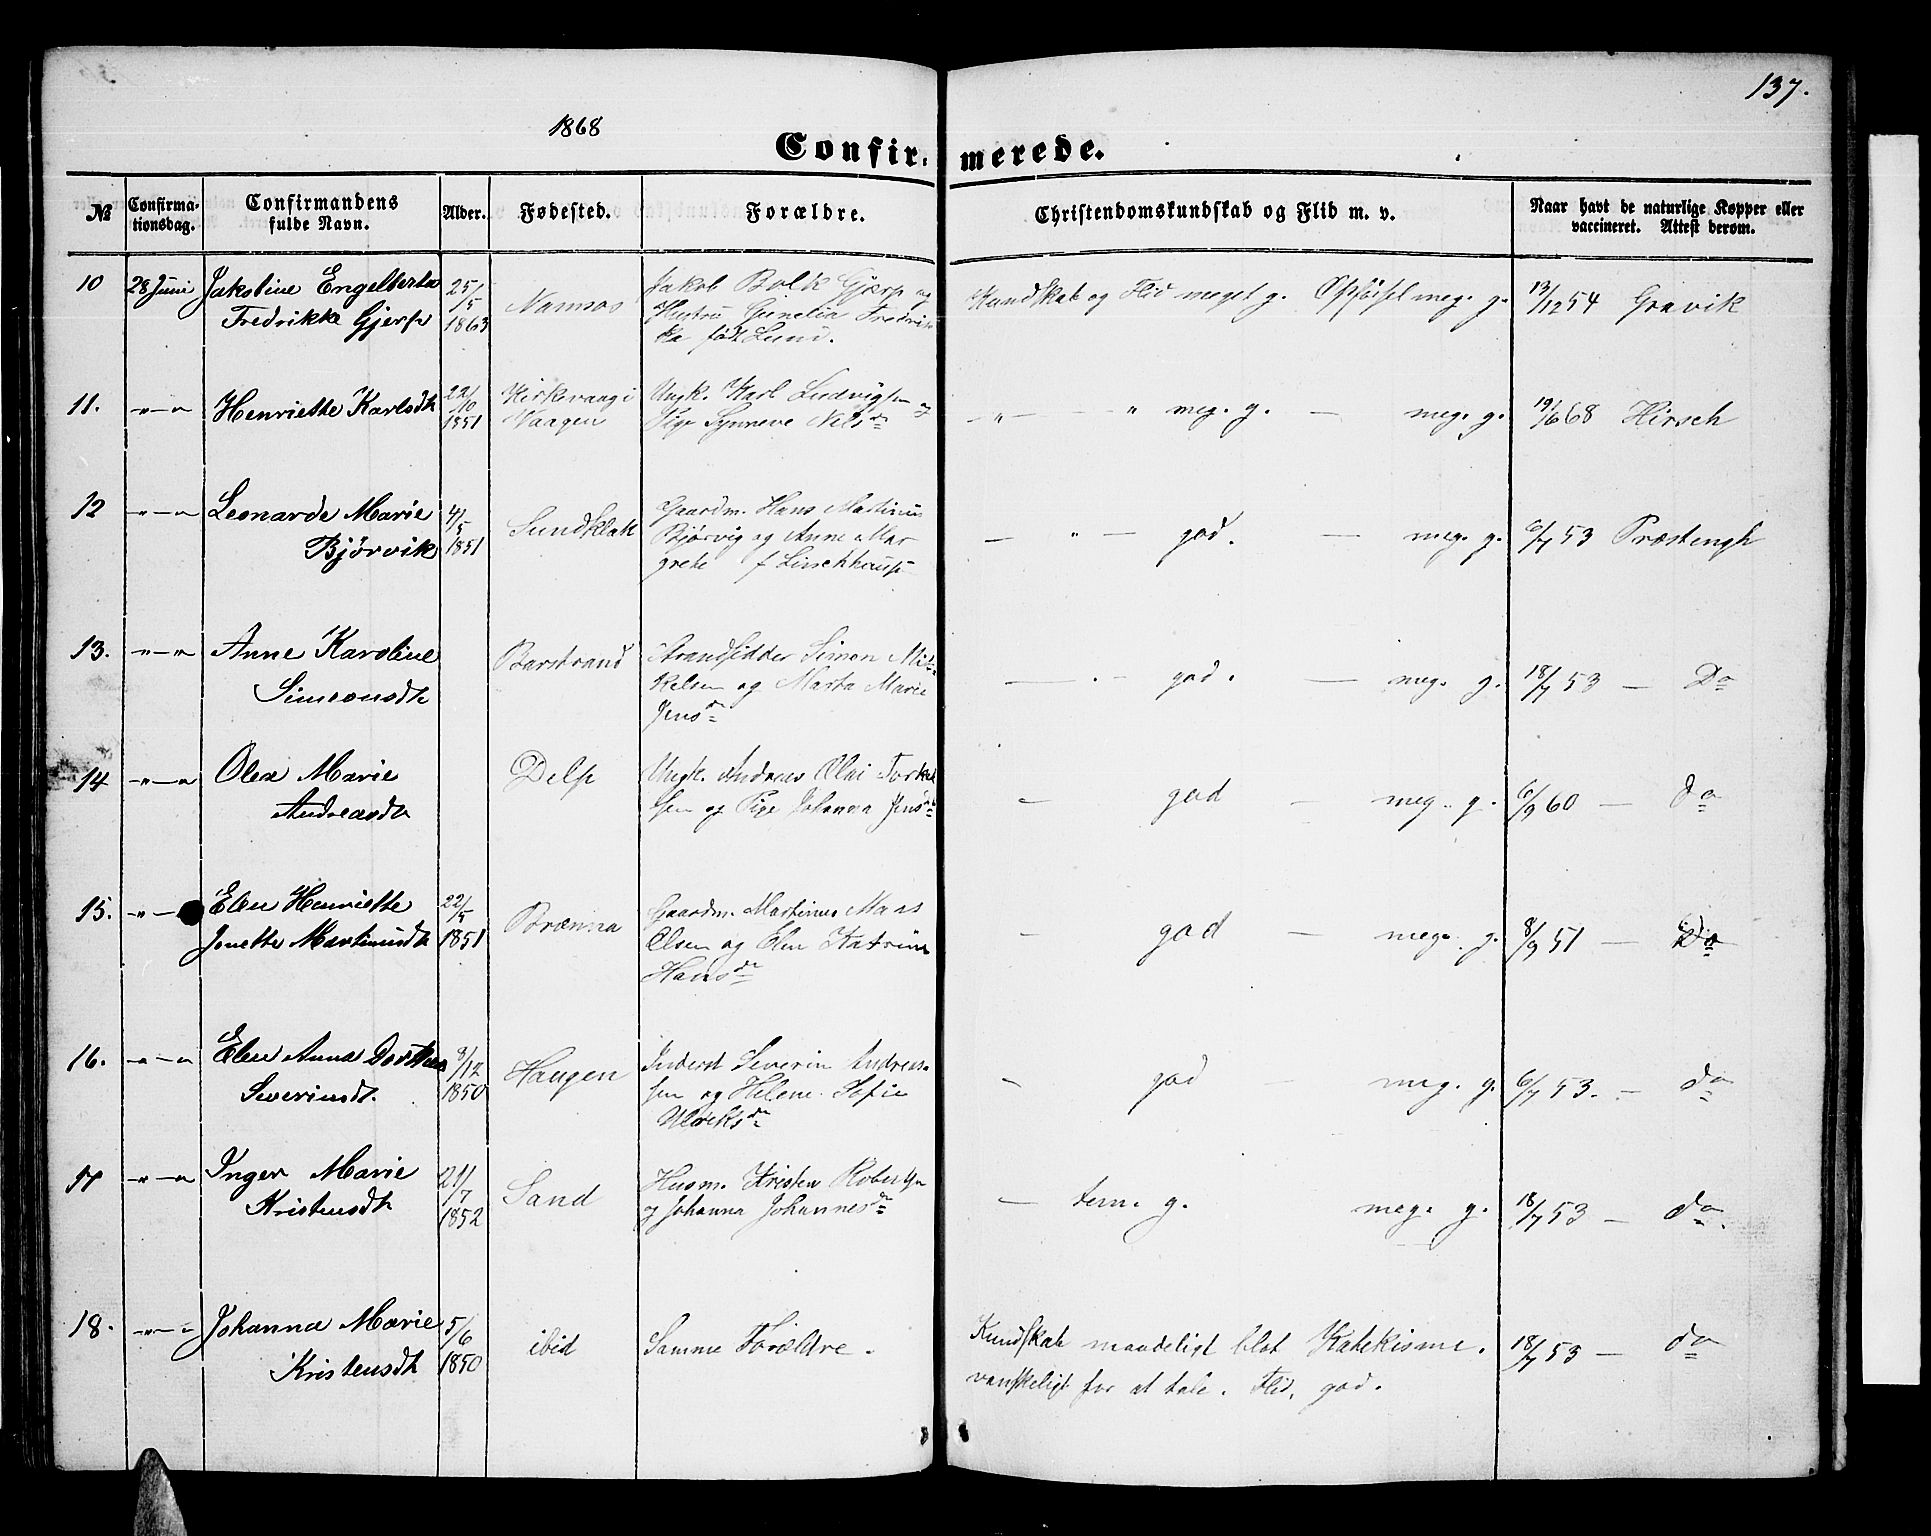 137.
1868
Confir- merede.
№ Confirma-tionsdag. Confirmandens fulde Navn. Alder. Fødested. Forældre. Christendomskundskab og Flid m. v. Naar havt de naturlige Kopper eller vaccineret. Attest derom.
10 28 Juni Jakobine Engelberta 25/5 Namsos Jakob Bolk Gjærp og Kundskab og Flid meget g. Opførsel meg. g. 13/12 54 Grøvik
Fredrikke Gjerp 1863 Hustru Fredrik
ka fød Lund.
11. -"-" Henriette Karlsdtr 22/10 Kirkevaag i Ungk. Karl Ludvigsen og -"- " meg. g. - meg. g. 19/6 68 Hirsch
1851 Vaagen Pige Synneve Nelsdr
12 -"-" Leonarde Marie 4/5 Sundklak Gaardm. Hans Martinus - " - god. - meg. g. 6/7 53 Præstengh
Bjørvik 1851 Bjørvig og Anne Mar
grete f
13. -"-" Anne Karoline Barstrand Strandsidder Simon Mik - - god. - meg. g. 18/7 53 - Do
Simeonsdtr kelsen og Marta Marie
Jensdr
14 -"-" Olea Marie Delp Ungk. Andreas Olai Torkel - god - meg. g. 6/9 60 - do
Andreasdtr sen og Pige Johanna Jensdr
15. -"- Elen Henriette 22/5 Brænna Gaardm. Martinus Maas - god - meg. g. 8/9 51 - Do
Jonette Martinusdtr 1851 Olsen og Elen Katrine
Hansdr
16. -"-" Elen Anna Dorthea 8/12 Haugen Inderst Severin Andreas- - god - meg. g. 6/7 53. - do
Severinsdtr. 1850 sen og Helene Sofie
Ulriksdr
17 -"-" Inger Marie 21/7 Sand Husm. Kristen Robertsen - tem. g. meg. g. 18/7 53 - do.
Kristensdtr 1852 og Johanna Johannesdr
18. -"-" Johanna Marie 5/6 ibid Samme Forældre. Kundskab maadeligt blot Katekisme. 18/7 53 - do
Kristensdtr 1850 vanskeligt for at tale. Flid, god.